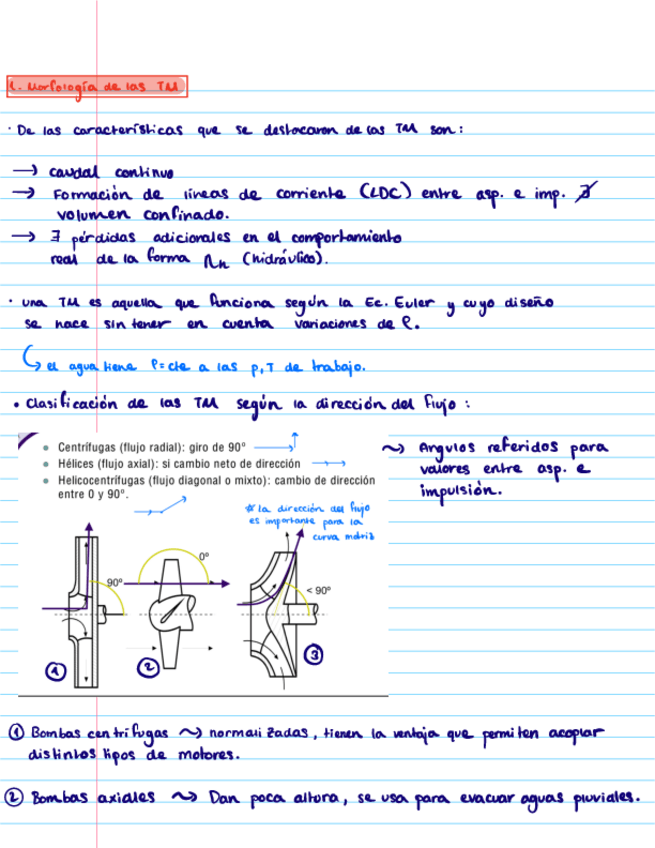 1. Morfología de las TM
· De las características que se destacaron de las TM son:
→ caudal continuo
→ Formación de líneas de corriente (LDC) entre asp. e imp. ∄
volumen confinado.
→ ∃ pérdidas adicionales en el comportamiento
real de la forma ηh (hidráulico).
· una TM es aquella que funciona según la Ec. Euler y cuyo diseño
se hace sin tener en cuenta variaciones de ρ.
↳ el agua tiene ρ=cte a las p,T de trabajo.
• Clasificación de las TM según la dirección del flujo:
• Centrífugas (flujo radial): giro de 90°
• Hélices (flujo axial): si cambio neto de dirección
• Helicocentrífugas (flujo diagonal o mixto): cambio de dirección
entre 0 y 90°.
~> Angulos referidos para
valores entre asp. e
impulsión.
* la dirección del flujo
es importante para la
curva motriz
90°
0°
< 90°
1
2
3
① Bombas centrífugas ~> normalizadas, tienen la ventaja que permiten acoplar
distintos tipos de motores.
② Bombas axiales ~> Dan poca altura, se usa para evacuar aguas pluviales.